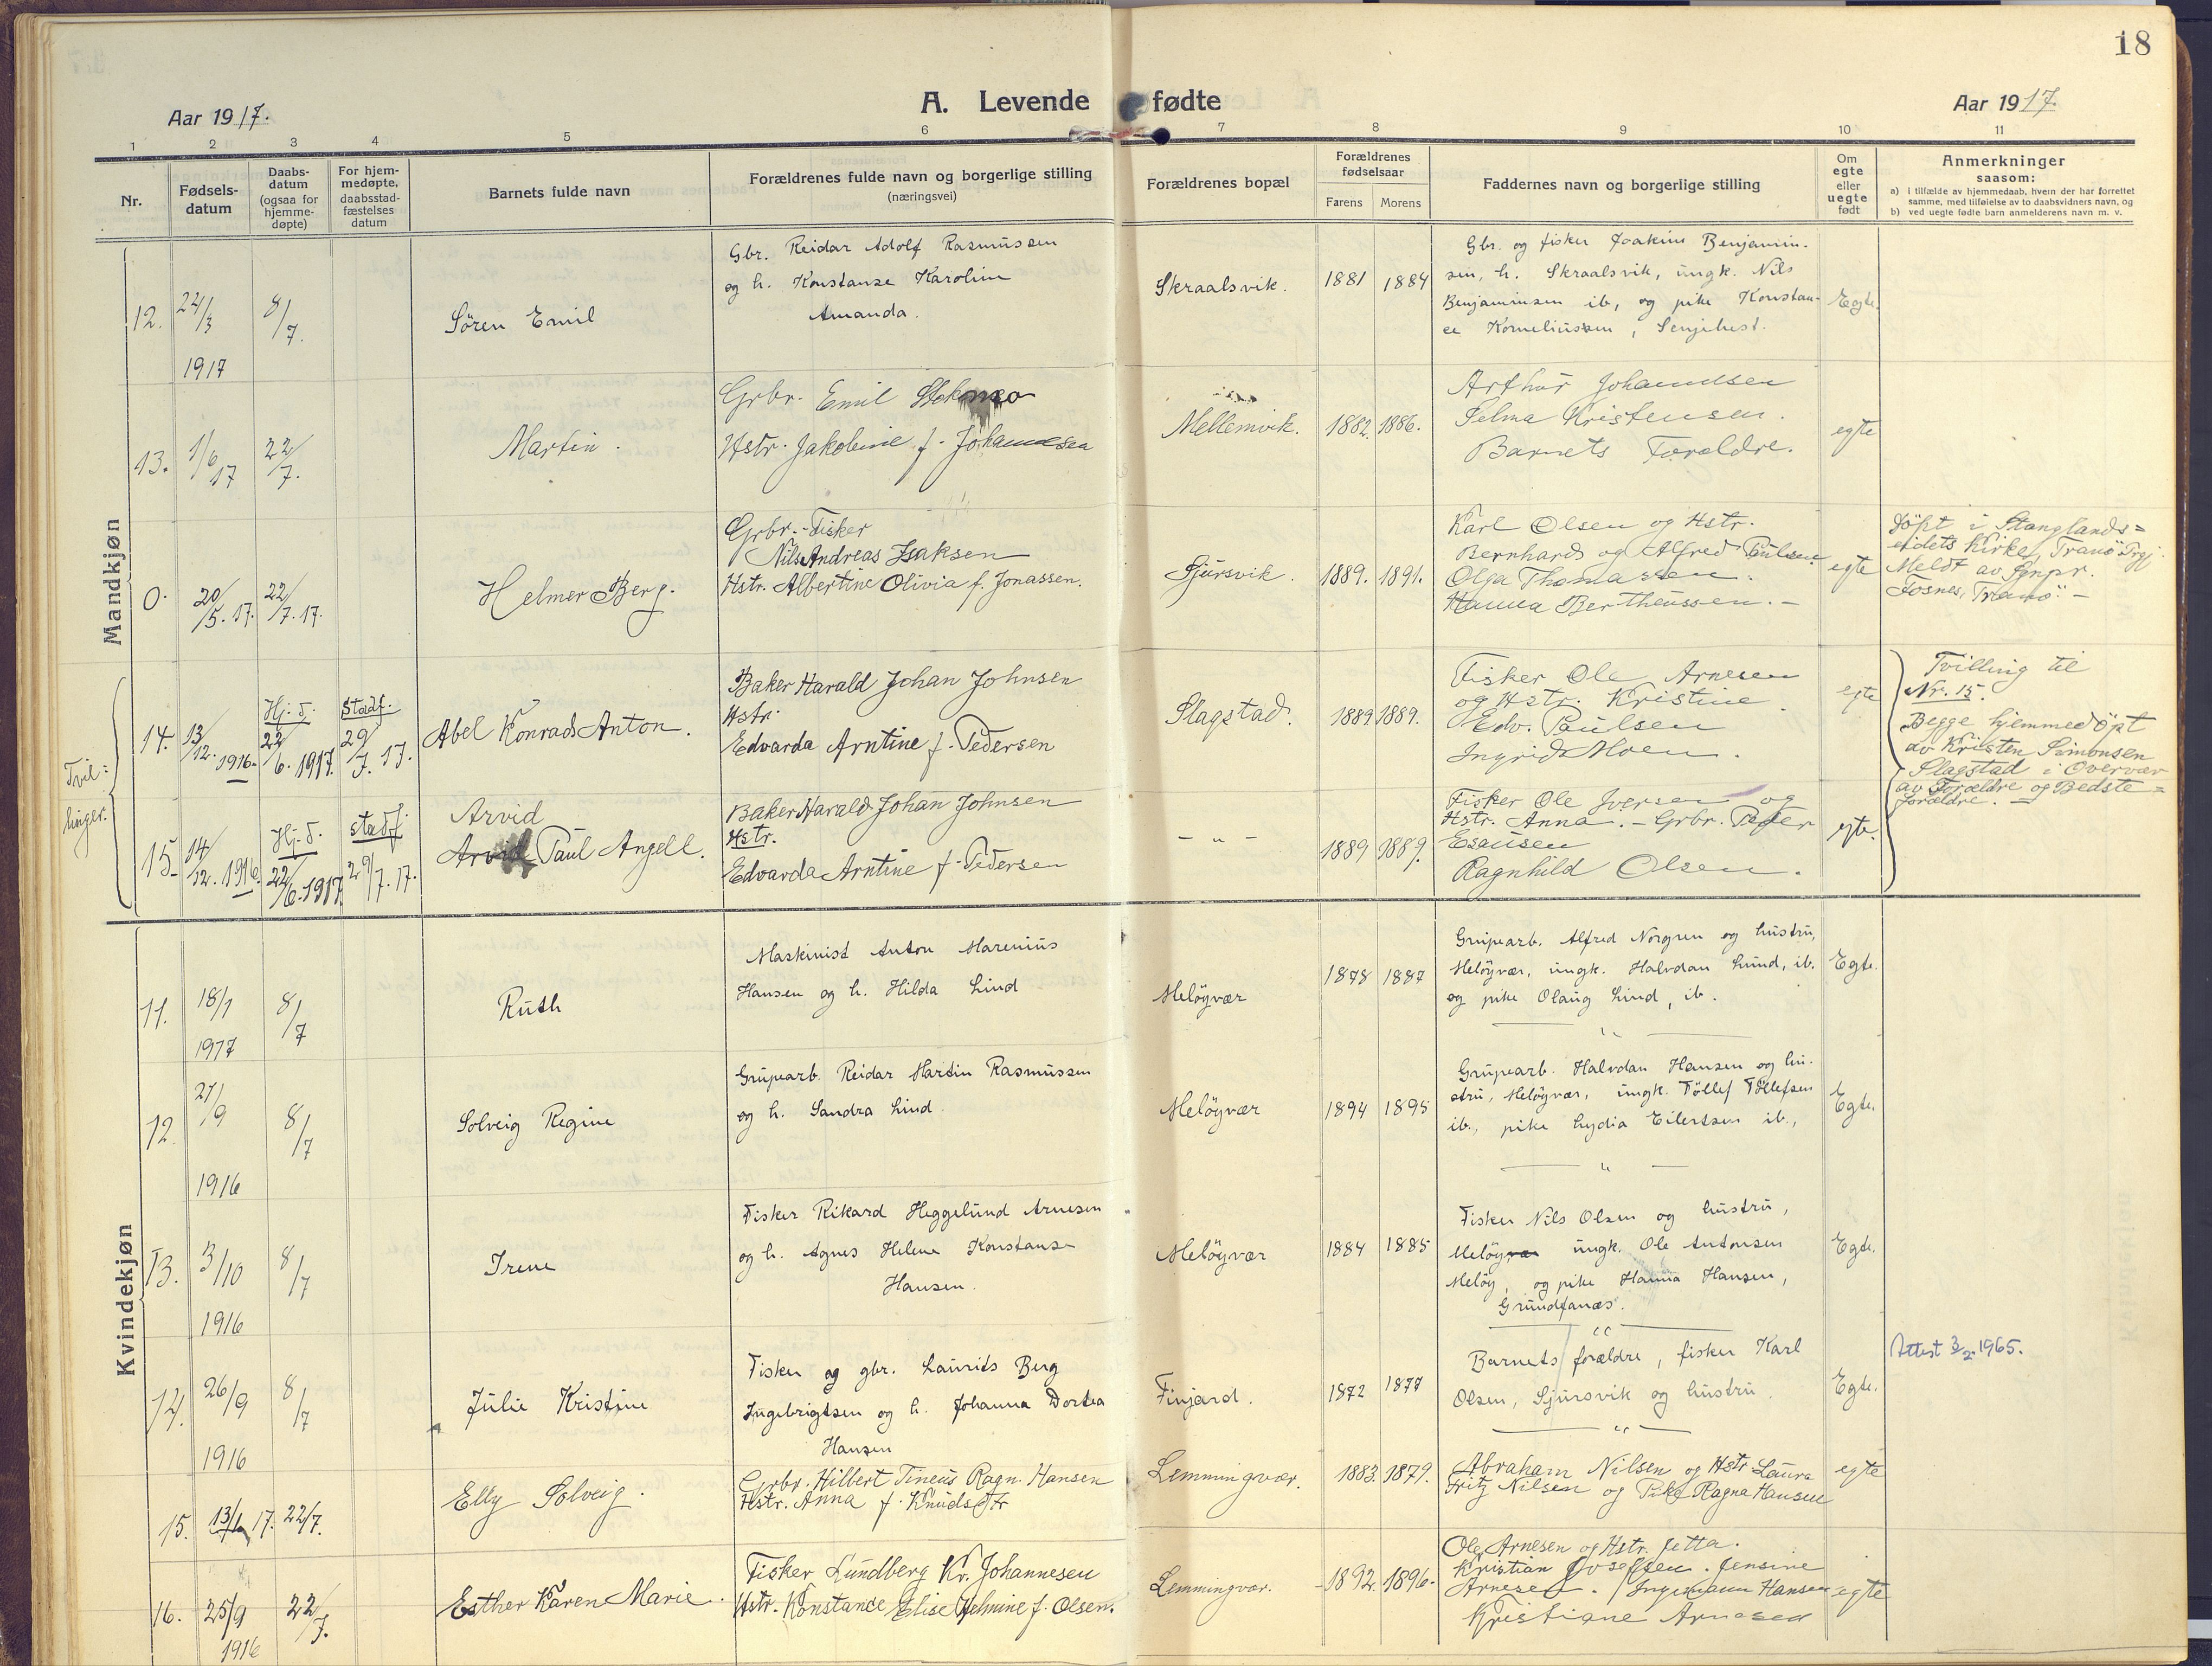 18
Aar 1917.
A. Levende fødte
Aar 1917.
1 2 3 4 5 6 7 8 9 10 11
Nr.
Fødsels-
datum
Daabs-
datum
(ogsaa for
hjemme-
døpte)
For hjem-
medøpte,
daabsstad-
fæstelses
datum
Barnets fulde navn
Forældrenes fulde navn og borgerlige stilling
(næringsvei)
Forældrenes bopæl
Forældrenes
fødselsaar
Farens Morens
Faddernes navn og borgerlige stilling
Om
egte
eller
uegte
født
Anmerkninger
saasom:
a) i tilfælde av hjemmedaab, hvem der har forrettet
samme, med tilføielse av to daabsvidners navn, og
b) ved uegte fødte barn anmelderens navn m. v.
Mandkjøn
12.
24/3
1917
8/7.
Sören Emil
Gbr. Reidar Adolf Rasmussen
og h. Konstanse Karoline
Amanda.
Skraalsvik.
1881 1884
Gbr. og fisker Joakim Benjamin-
sen, h. Skraalsvik, ungk. Nils
Benjaminsen ib, og pike Konstan-
ce Korneliussen, Senjehest.
Egte.
13.
1/6 17
22/7.
Martin.
Grbr. Emil Stokmo
Hstr. Jakobine f. Johannesen
Mellemvik.
1882. 1886.
Arthur Johannesen
Selma Kristensen.
Barnets Forældre.
egte
0.
20/5. 17.
22/7. 17.
Helmer Berg.
Grbr.-Fisker
Nils Andreas Isaksen
Hstr. Albertine Olivia f. Jonassen.
Sjursvik.
1889. 1891.
Karl Olsen og Hstr.
Bernhard og Alfred Paulsen
Olga Thomassen.
Hanna Bertheussen. -
egte
Döpt i Stanglands=
eidets Kirke, Tranö Prgj.
Meldt av Sgnpr.
Fosnes, Tranö. -
Tvil=
linger.
14.
13/12. 1916.
Hj. d.
22/6. 1917.
Stadf.
29/7. 17.
Abel Konrad Anton.
Baker Harald Johan Johnsen
Hstr.
Edvarda Arntine f. Pedersen
Slagstad.
1889 1889.
Fisker Ole Arnesen
og Hstr. Kristine.
Edv. Paulsen
Ingrid Moen.
egte
Tvilling til
Nr. 15.
Begge hjemmedöpt
av Kristen Simonsen
Slagstad i Overvær
av Forældre og Bedste=
forældre. -
15
14/12. 1916.
Hj. d.
22/6. 1917.
stadf.
29/7. 17.
Arvid
Arvid Paul Angell.
Baker Harald Johan Johnsen
Hstr.
Edvarda Arntine f. Pedersen
- " -
1889 1889.
Fisker Ole Iversen og
Hstr. Anna. - Grbr. Peter
Esausen
Ragnhild Olsen.
egte.
Kvindekjøn
11.
18/1
1917
8/7
Ruth
Maskinist Anton Marenius
Hansen og h. Hilda Lind
Melöyvær
1878 1887
Grupearb. Alfred Norgren og hustru,
Melöyvær, ungk. Halvdan Lund, ib.
og pike Olaug Lind, ib.
"
Egte.
12.
27/9
1916
8/7
Solveig Regine
Grupearb. Reidar Martin Rasmussen
og h. Sandra Lind
Melöyvær
1894 1895
Grupearb. Halvdan Hansen og hu-
stru, Melöyvær, ungk. Töllef Töllefsen
ib., pike Lydia Eilertsen ib.,
"
Egte.
13.
3/10
1916
8/7
Irene
Fisker Rikard Heggelund Arnesen
og h. Agnes Helene Konstanse
Hansen.
Melöyvær
1884 1885
Fisker Nils Olsen og hustru,
Melöyvær ungk. Ole Antonsen
Melöy, og pike Hanna Hansen,
Grundfanæs.
"
Egte.
14.
26/9
1916
8/7
Julie Kristine
Fisker og gbr. Laurits Berg
Ingebrigtsen og h. Johanna Dortea
Hansen
Finjard.
1872 1877
Barnets forældre, fisker Karl
Olsen, Sjursvik og hustru.
"
Egte.
Attest 3/2 1965.
15.
13/1 17.
22/7.
Elly Solveig.
Grbr. Hilbert Tineus Ragn. Hansen
Hstr. Anna f. Knudsdtr
Lemmingvær.
1883. 1879.
Abraham Nilsen og Hstr Laura
Fritz Nilsen og Pike Ragna Hansen
egte
16.
25/9
1916
22/7.
Esther Karen Marie.
Fisker Lundberg Kr. Johannesen
Hstr. Konstance Elise Helmine f. Olsen.
Lemmingvær.
1892. 1896.
Ole Arnesen og Hstr. Jetta.
Kristian Joseffsen. Jensine
Arnesen. Ingemann Hansen
Kristiane Arnesen
egte